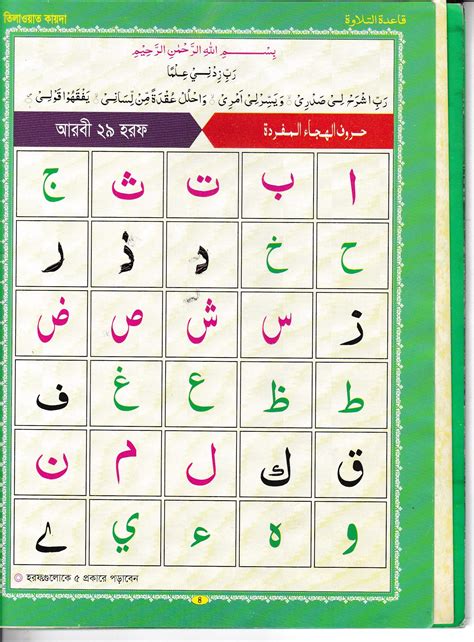 তিলাওয়াত কায়দা قاعدة التلاوة
بِسْمِ اللهِ الرَّحْمٰنِ الرَّحِيْمِ
رَبِّ زِدْنِيْ عِلْمًا
رَبِّ اشْرَحْ لِيْ صَدْرِيْ وَيَسِّرْلِيْ اَمْرِيْ وَاحْلُلْ عُقْدَةً مِّنْ لِّسَانِيْ يَفْقَهُوْا قَوْلِيْ
আরবী ২৯ হরফ حروف الهجاء المفردة
ا ب ت ث ج
ح خ د ذ ر
ز س ش ص ض
ط ظ ع غ ف
ق ك ل م ن
و ه ء ي ے
হরফগুলোকে ৫ প্রকারে পড়াবেন
৪